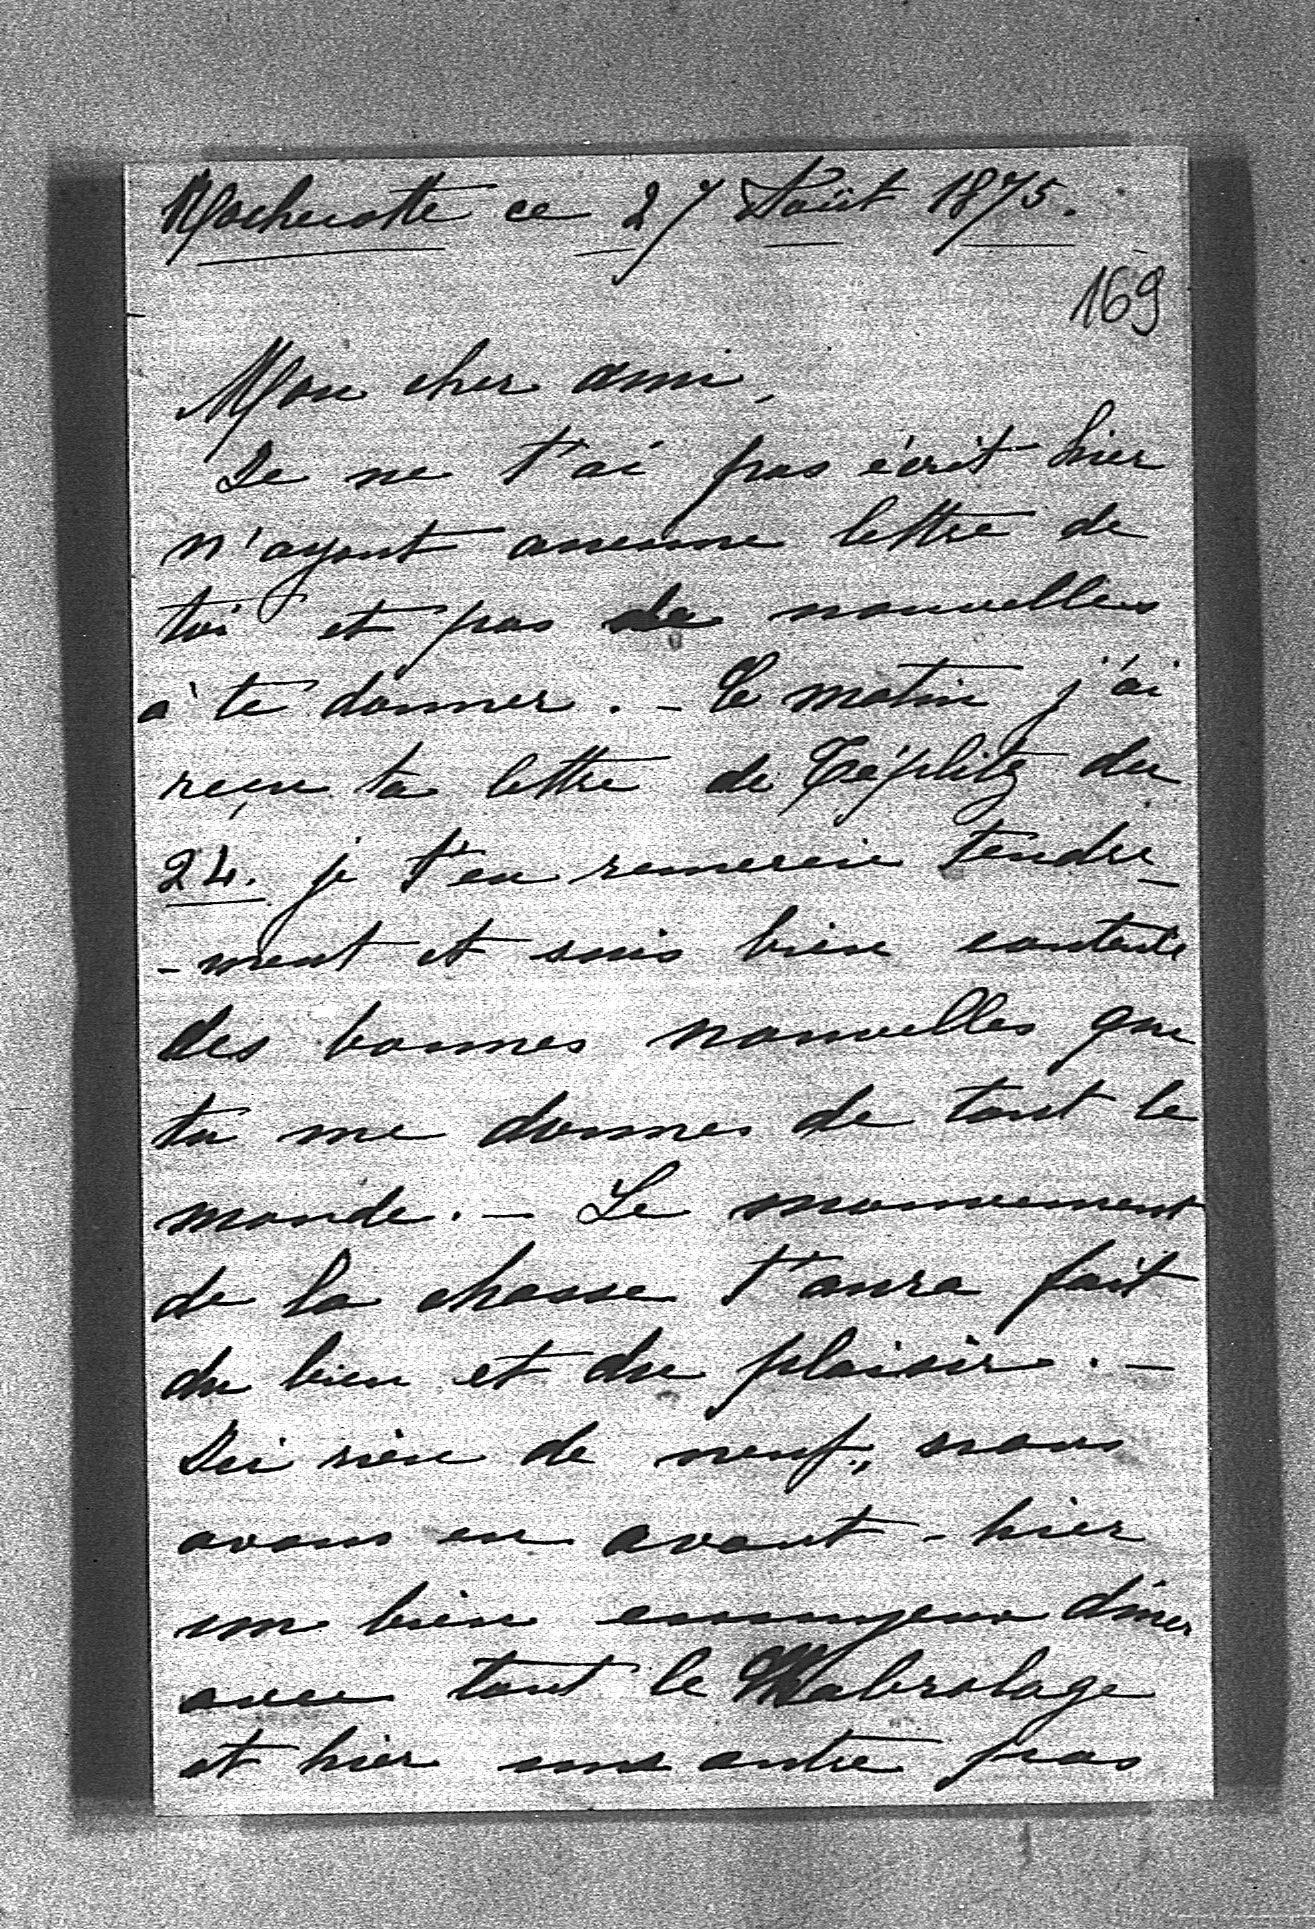 Rochecotte ce 27 Août 1875.
169
Mon cher ami,
Je ne t'ai pas écrit hier
n'ayant aucune lettre de
toi et pas de nouvelles
à te donner. - Ce matin j'ai
reçu ta lettre de Téplitz du
24. je t'en remercie tendre_
-ment et suis bien contente
des bonnes nouvelles que
tu me donnes de tout le
monde. - Le mouvement
de la chasse t'aura fait
du bien et du plaisir. -
Ici rien de neuf, nous
avons eu avant-hier
un bien ennuyeux diner
avec tout le
et hier une autre pas